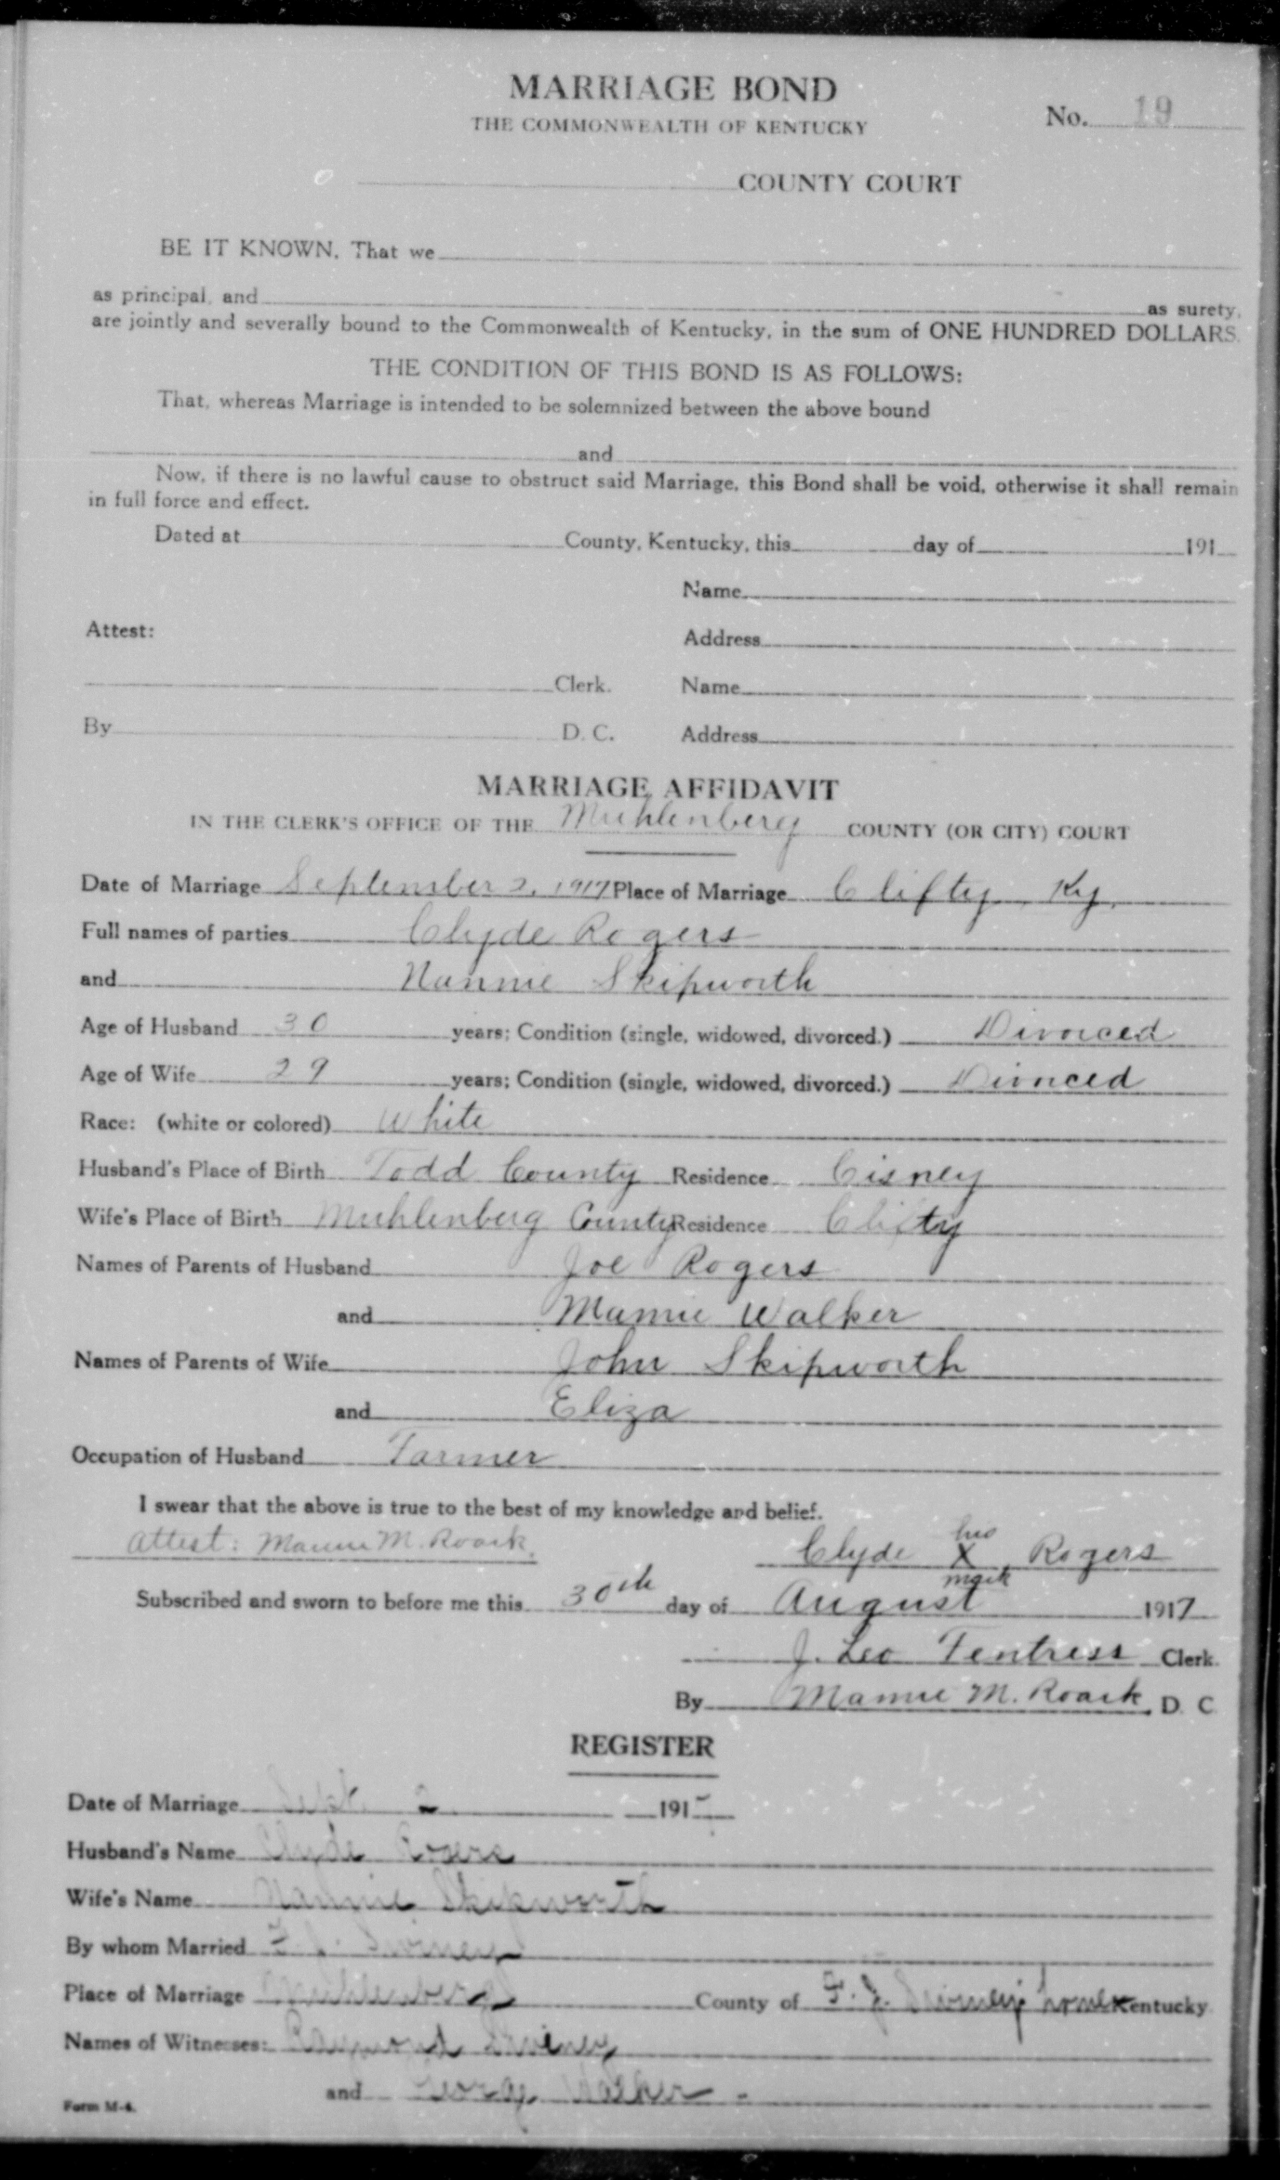 MARRIAGE BOND
THE COMMONWEALTH OF KENTUCKY
No. 19
COUNTY COURT
BE IT KNOWN, That we
as principal, and as surety,
are jointly and severally bound to the Commonwealth of Kentucky, in the sum of ONE HUNDRED DOLLARS.
THE CONDITION OF THIS BOND IS AS FOLLOWS:
That, whereas Marriage is intended to be solemnized between the above bound
and
Now, if there is no lawful cause to obstruct said Marriage, this Bond shall be void, otherwise it shall remain
in full force and effect.
Dated at County, Kentucky, this day of 191
Name
Attest: Address
Clerk. Name
By D. C. Address
MARRIAGE AFFIDAVIT
IN THE CLERK'S OFFICE OF THE Muhlenberg COUNTY (OR CITY) COURT
Date of Marriage September 2, 1917 Place of Marriage Clifty, Ky.
Full names of parties Clyde Rogers
and Nannie Skipworth
Age of Husband 30 years; Condition (single, widowed, divorced.) Divorced
Age of Wife 29 years; Condition (single, widowed, divorced.) Divorced
Race: (white or colored) White
Husband's Place of Birth Todd County Residence Cisney
Wife's Place of Birth Muhlenberg County Residence Clifty
Names of Parents of Husband Joe Rogers
and Mamie Walker
Names of Parents of Wife John Skipworth
and Eliza
Occupation of Husband Farmer
I swear that the above is true to the best of my knowledge and belief.
Attest: Mamie M. Roark. Clyde his X mark Rogers
Subscribed and sworn to before me this 30th day of August 1917
J. Leo Fentress Clerk.
By Mamie M. Roark, D. C
REGISTER
Date of Marriage Sept 2 191
Husband's Name Clyde Rogers
Wife's Name Nannie Skipworth
By whom Married F. J. Swiney
Place of Marriage Muhlenberg County of F. J. Swiney home Kentucky
Names of Witnesses: Raymond Swiney
and George Walker
Form M-4.